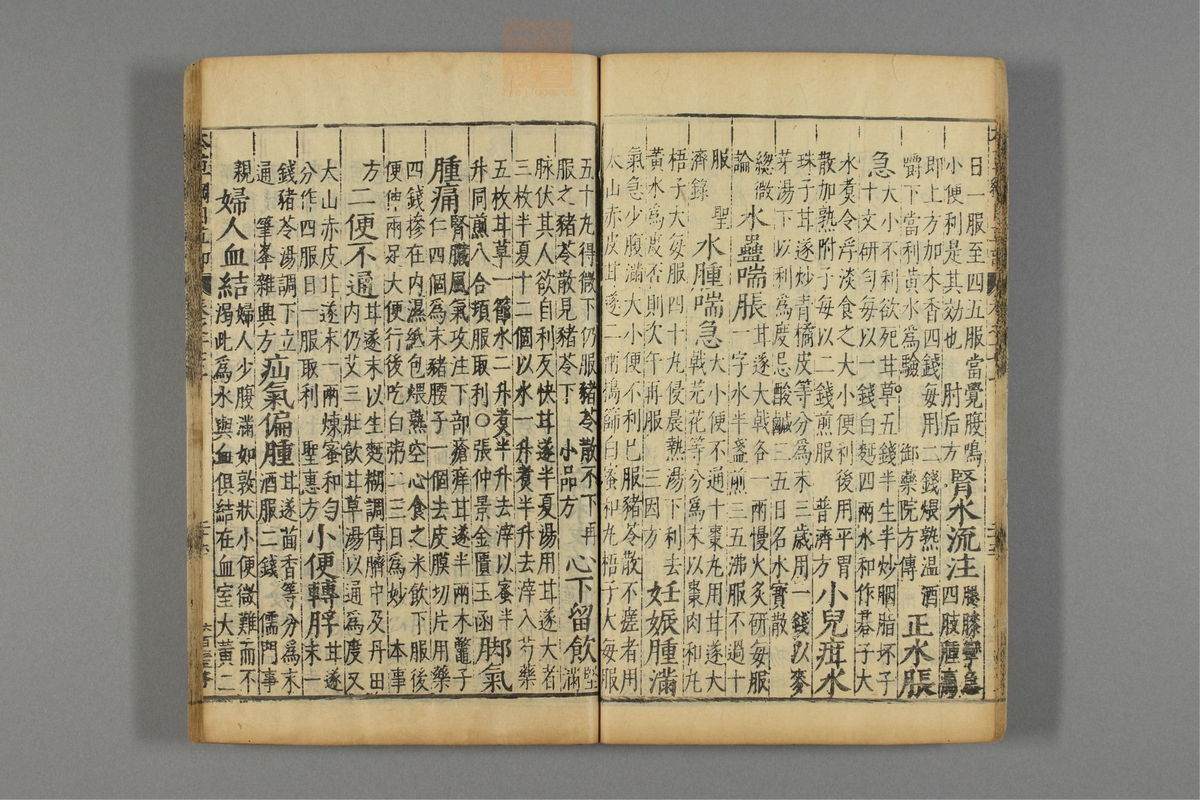 日一服至四五服當覺腹鳴
小便利是其効也　肘后方　腎水流注 腿膝攣急
即上方加木香四錢毎用二錢煨熟温酒 四肢腫痛
嚼下當利黃水為驗　御藥院方傳　正水脹
急 大小不利欲死甘草五錢半生半炒胭脂坏子
十文研勻每以一錢白麪四兩水和作棊子大
水煮令浮淡食之大小便利後用平胃
散加熟附子每以二錢煎服　普濟方　小兒疳水
珠子甘遂炒青橘皮等分為末三歲用一錢以麥
芽湯下以利為度忌酸鹹三五日名水寶散
總微論 水蠱喘脹 甘遂大戟各一兩慢火炙研每服
一字水半盞煎三五沸服不過十
服 聖濟錄 水腫喘急 大小便不通十棗丸用甘遂大
戟芫花等分為末以棗肉和丸
梧子大每服四十丸侵晨熱湯下利去
黃水為度否則次午再服　三因方　妊娠腫滿
氣急少腹滿大小便不利已服豬苓散不瘥者用
太山赤皮甘遂二兩搗篩白蜜和丸梧子大每服
五十丸得微下仍服豬苓散不下再
服之豬苓散見豬苓下　小品方　心下留飲 堅滿
脉伏其人欲自利反快甘遂半夏湯用甘遂大者
三枚半夏十二個以水一升煮半升去滓入芍藥
五枚甘草一節水二升煮半升去滓以蜜半
升同煎八合頓服取利○張仲景金匱玉函　脚氣
腫痛 腎臟風氣攻注下部瘡痒甘遂半兩木鼈子
仁四個為末豬腰子一個去皮膜切片用藥
四錢摻在內濕紙包煨熟空心食之米飲下服後
便伸兩足大便行後吃白粥二三日為妙　本事
方 二便不通 甘遂末以生麪糊調傅臍中及丹田
內仍艾三壯飲甘草湯以通為度又
大山赤皮甘遂末一兩煉蜜和勻
分作四服日一服取利　聖惠方　小便轉脬 甘遂末一
錢豬苓湯調下立
通　筆峯雜興方　疝氣偏腫 甘遂茴香等分為末
酒服二錢　儒門事
親 婦人血結 婦人少腹滿如敦狀小便微難而不
渴此為水與血俱結在血室大黃二